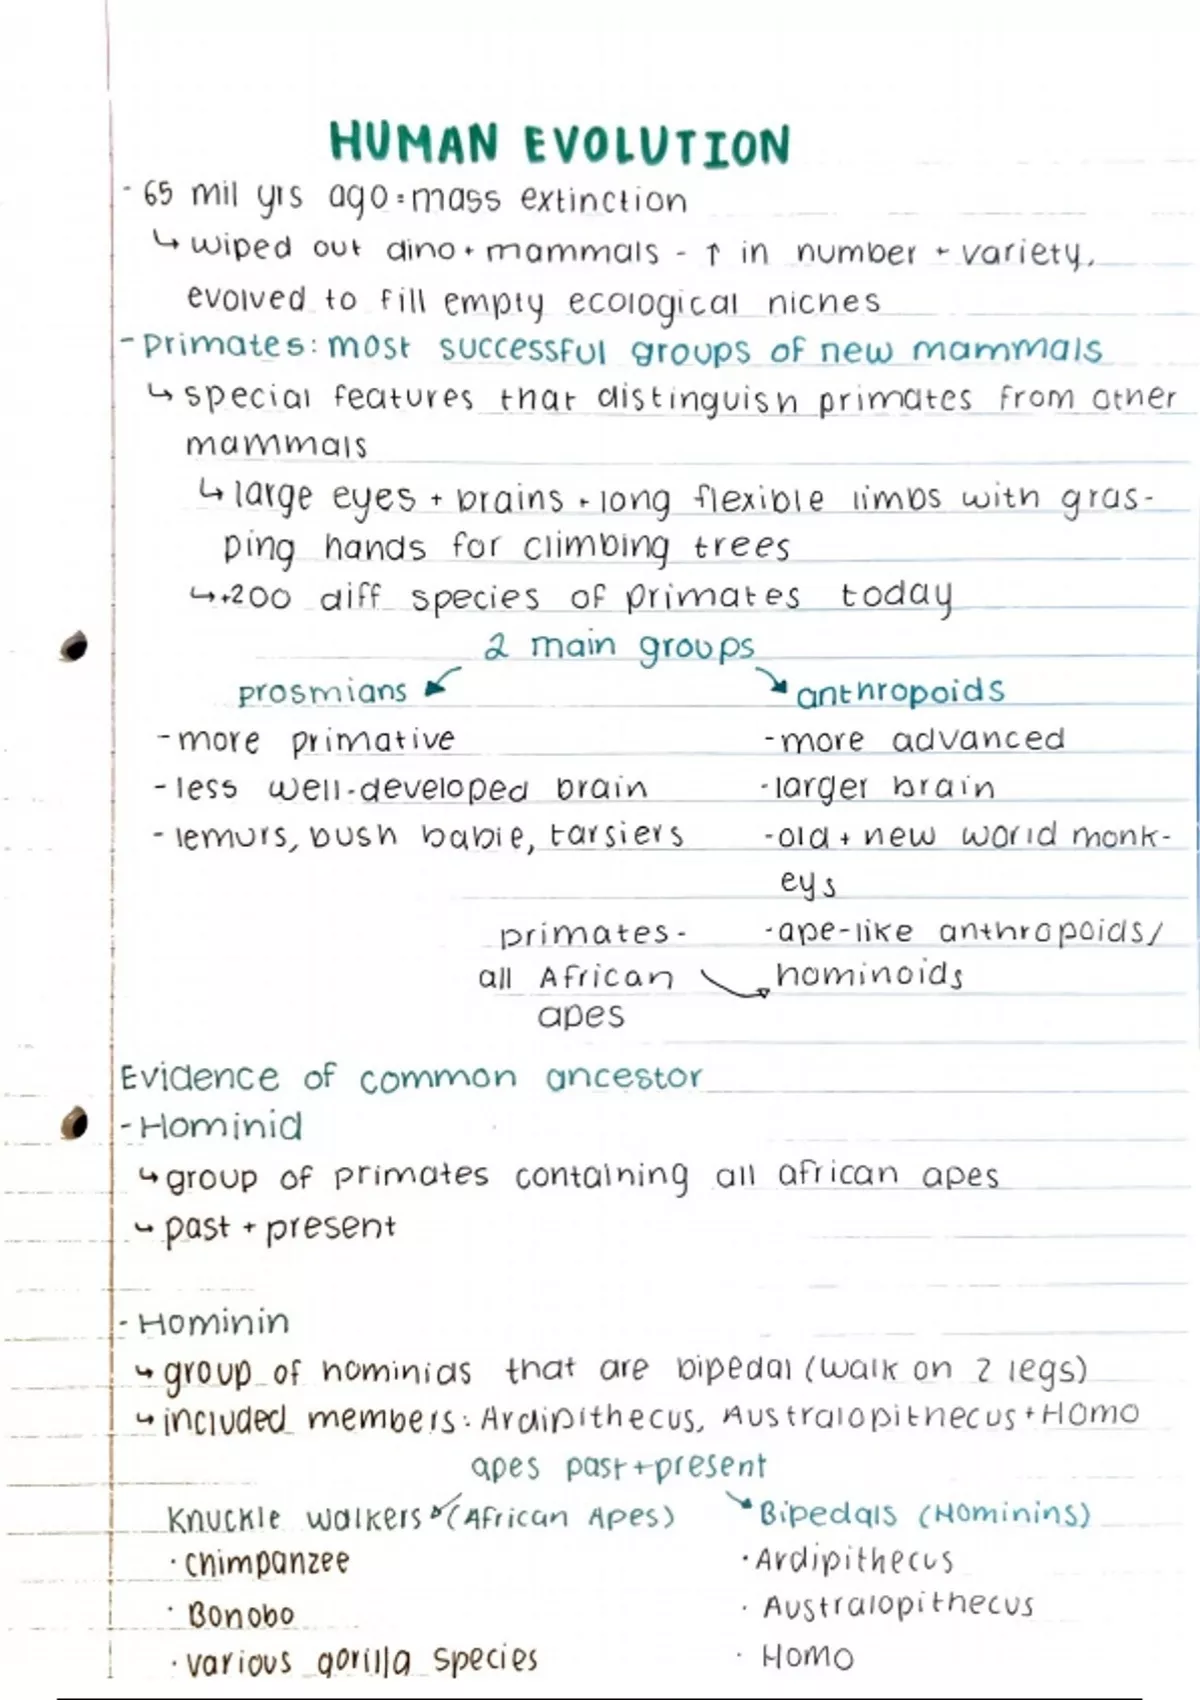 HUMAN EVOLUTION
- 65 mil yrs ago = mass extinction
↳ wiped out dino + mammals - ↑ in number + variety,
evolved to fill empty ecological niches
- primates: most successful groups of new mammals
↳ special features that distinguish primates from other
mammals
↳ large eyes + brains + long flexible limbs with gras-
ping hands for climbing trees
↳ +200 diff species of primates today
2 main groups
prosmians
anthropoids
- more primative
- less well-developed brain
- lemurs, bush babie, tarsiers
- more advanced
- larger brain
- old + new world monk-
eys
- ape-like anthropoids/
hominoids
primates -
all African
apes
Evidence of common ancestor
- Hominid
↳ group of primates containing all african apes
↳ past + present
- Hominin
↳ group of hominids that are bipedal (walk on 2 legs)
↳ included members: Ardipithecus, Australopithecus + Homo
apes past + present
Knuckle walkers (African Apes)
· chimpanzee
· Bonobo
· various gorilla species
Bipedals (Hominins)
· Ardipithecus
· Australopithecus
· Homo